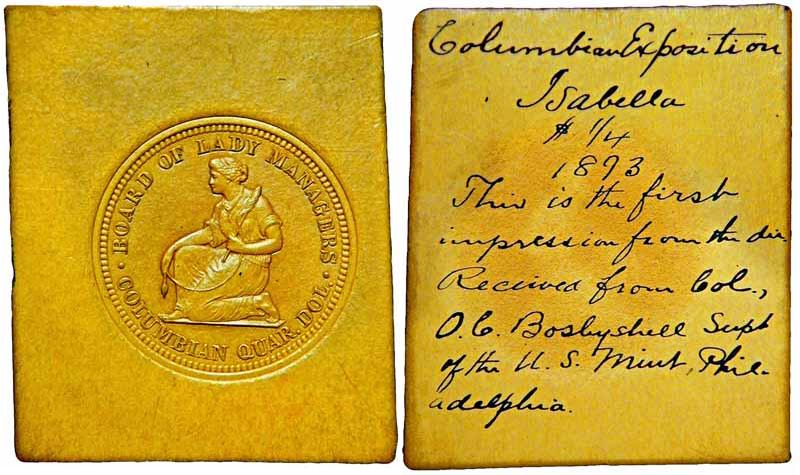 BOARD OF LADY MANAGERS
COLUMBIAN QUAR. DOL.
Columbian Exposition
Isabella
$ 1/4
1893
This is the first
impression from the die.
Received from Col.,
O.C. Bosbyshell Supt
of the U.S. Mint, Phil-
adelphia.